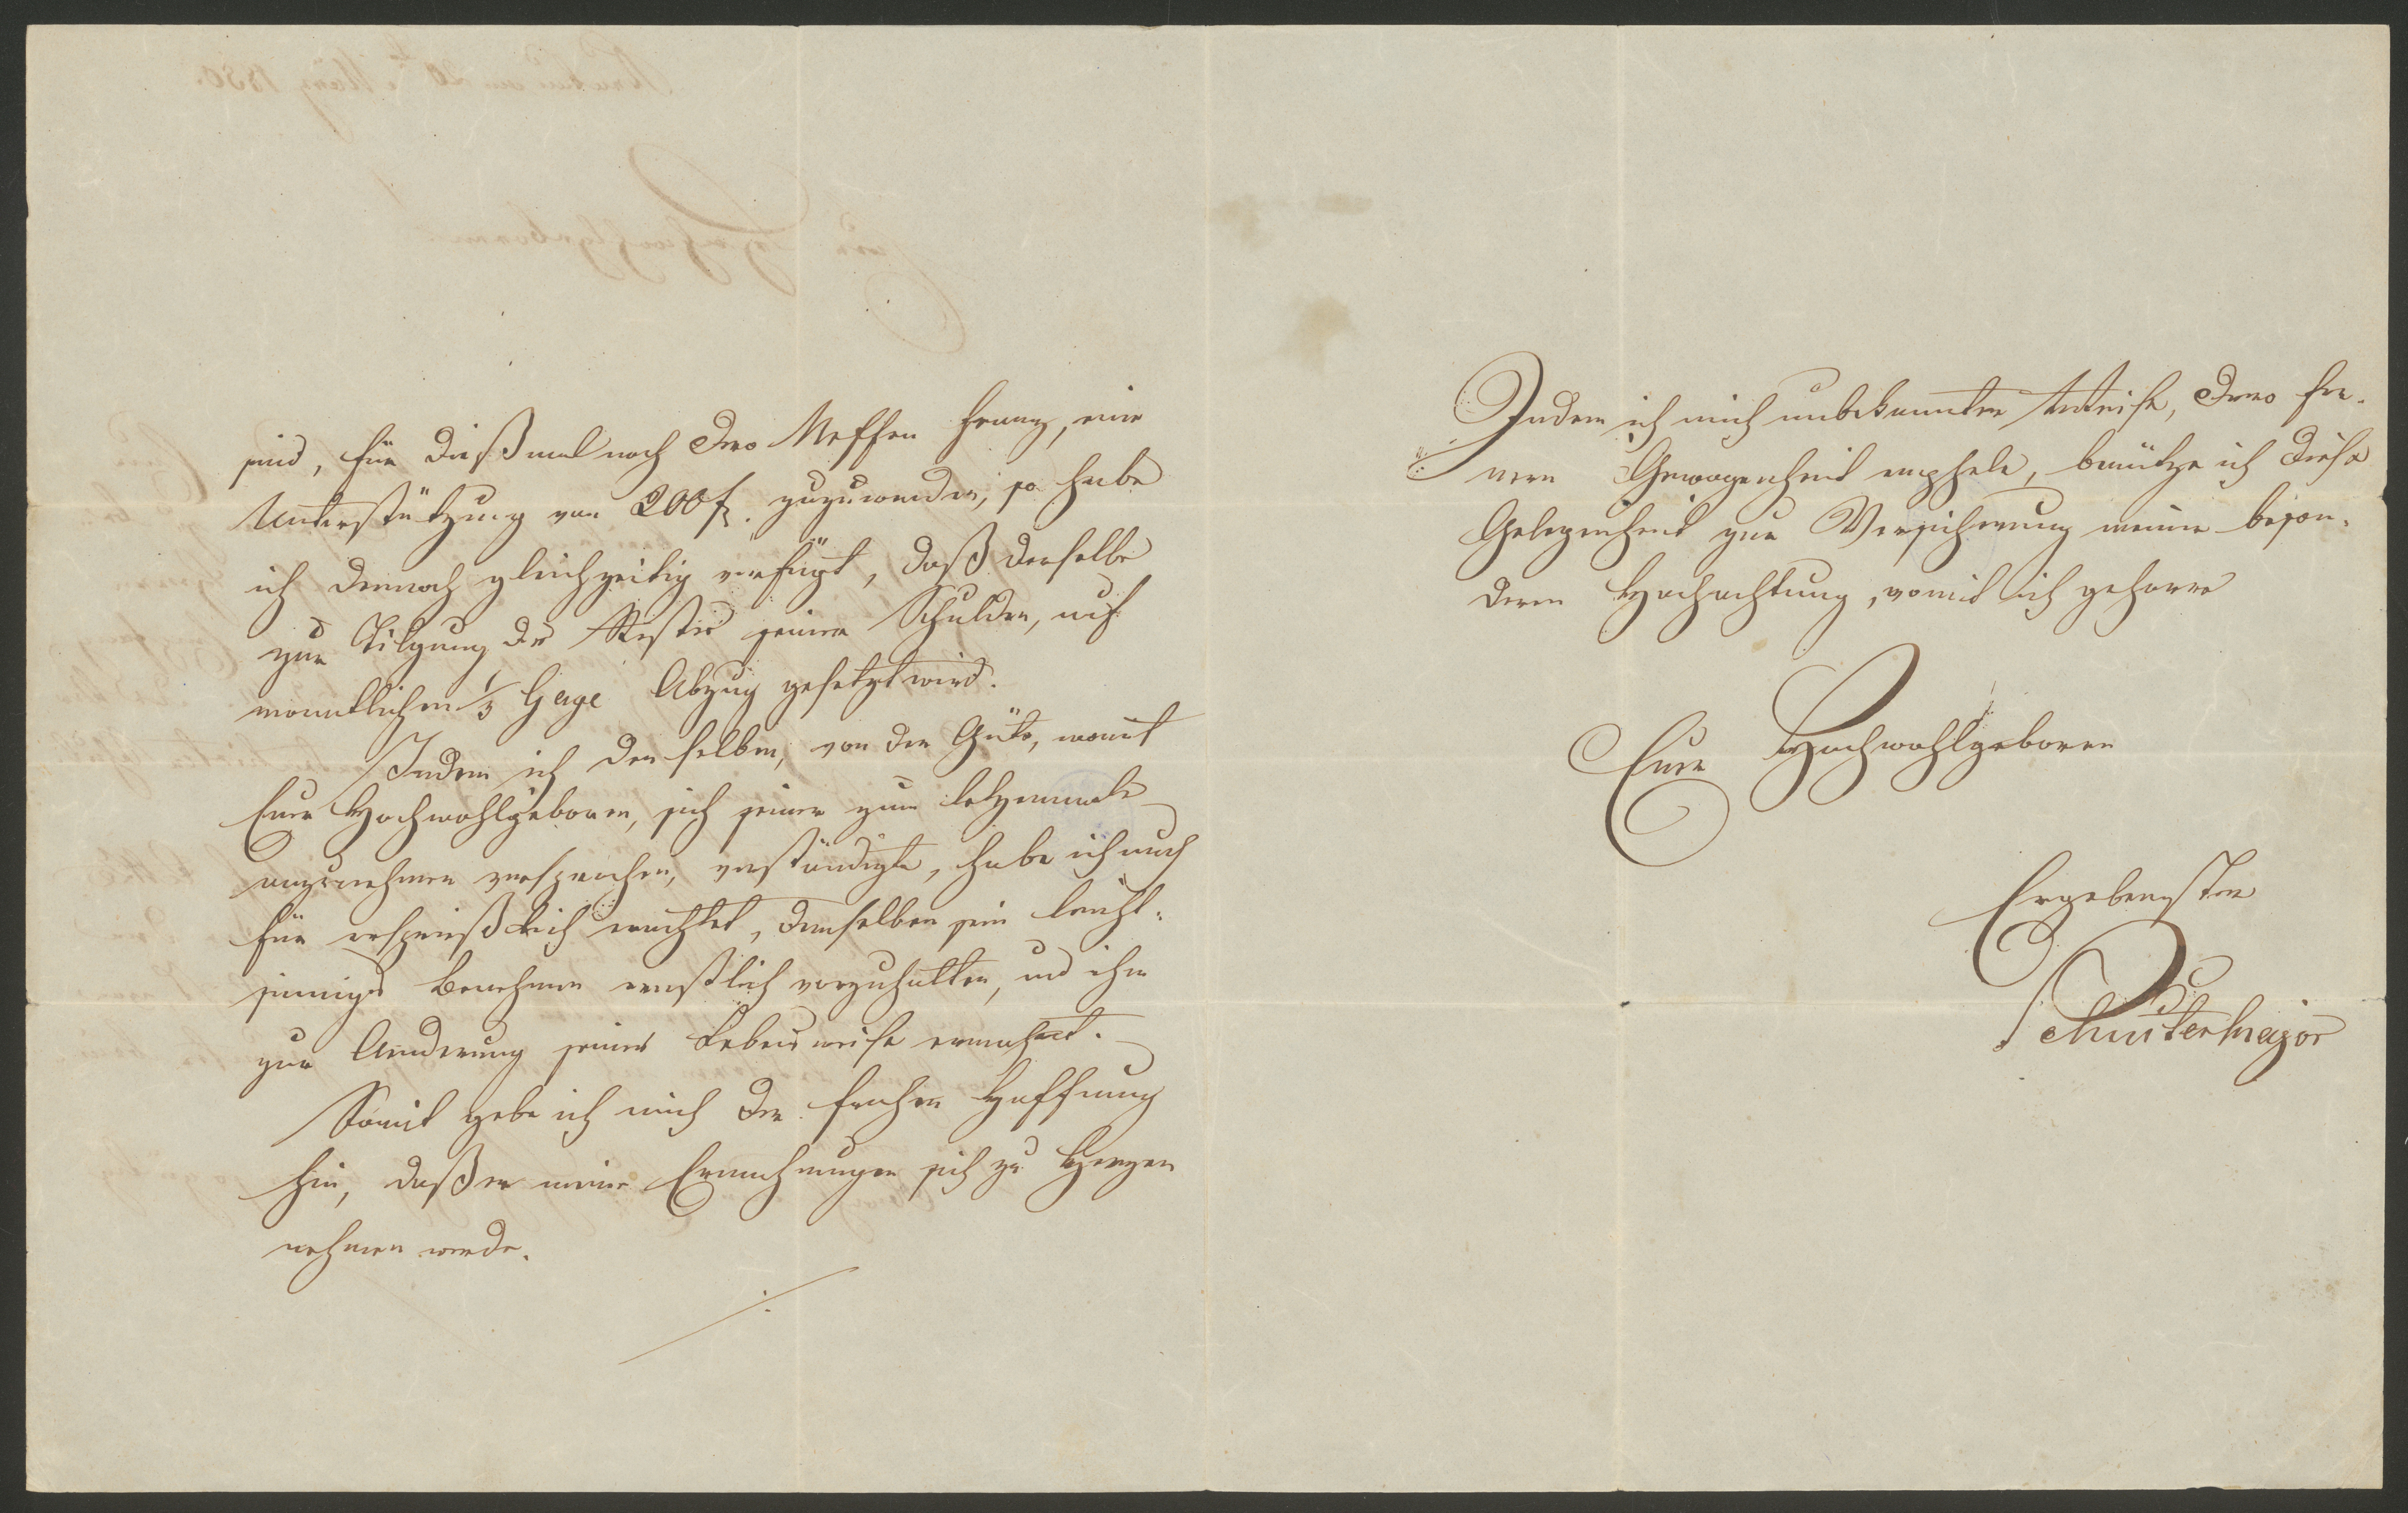 sind, für dießmal noch Dero Neffen Franz, eine
Unterstützung von 200 f. zuzuwenden, so habe
ich dennoch gleichzeitig verfügt, daß derselbe
zur Tilgung des Restes seiner Schulden, auf
monatlichen 1/3 Gage Abzug gesetzt wird.
Indem ich denselben, von der Güte, womit
Euer Hochwohlgeboren, sich seiner zum letztenmale
anzunehmen versprochen, verständigte, habe ich auch
für ersprießlich erachtet, demselben sein leicht=
sinniges Benehmen ernstlich vorzuhalten, und ihn
zur Aenderung seiner Lebensweise ermahnt.
Somit gebe ich mich der frohen Hoffnung
hin, daß er meine Ermahnungen sich zu Herzen
nehmen werde.
./.
Indem ich mich unbekannter Weise, Dero fer=
nern Gewogenheit emphele, benütze ich diese
Gelegenheit zur Versicherung meiner beson=
deren Hochachtung, womit ich geharre
Euer Hochwohlgeboren
Ergebenster
Major